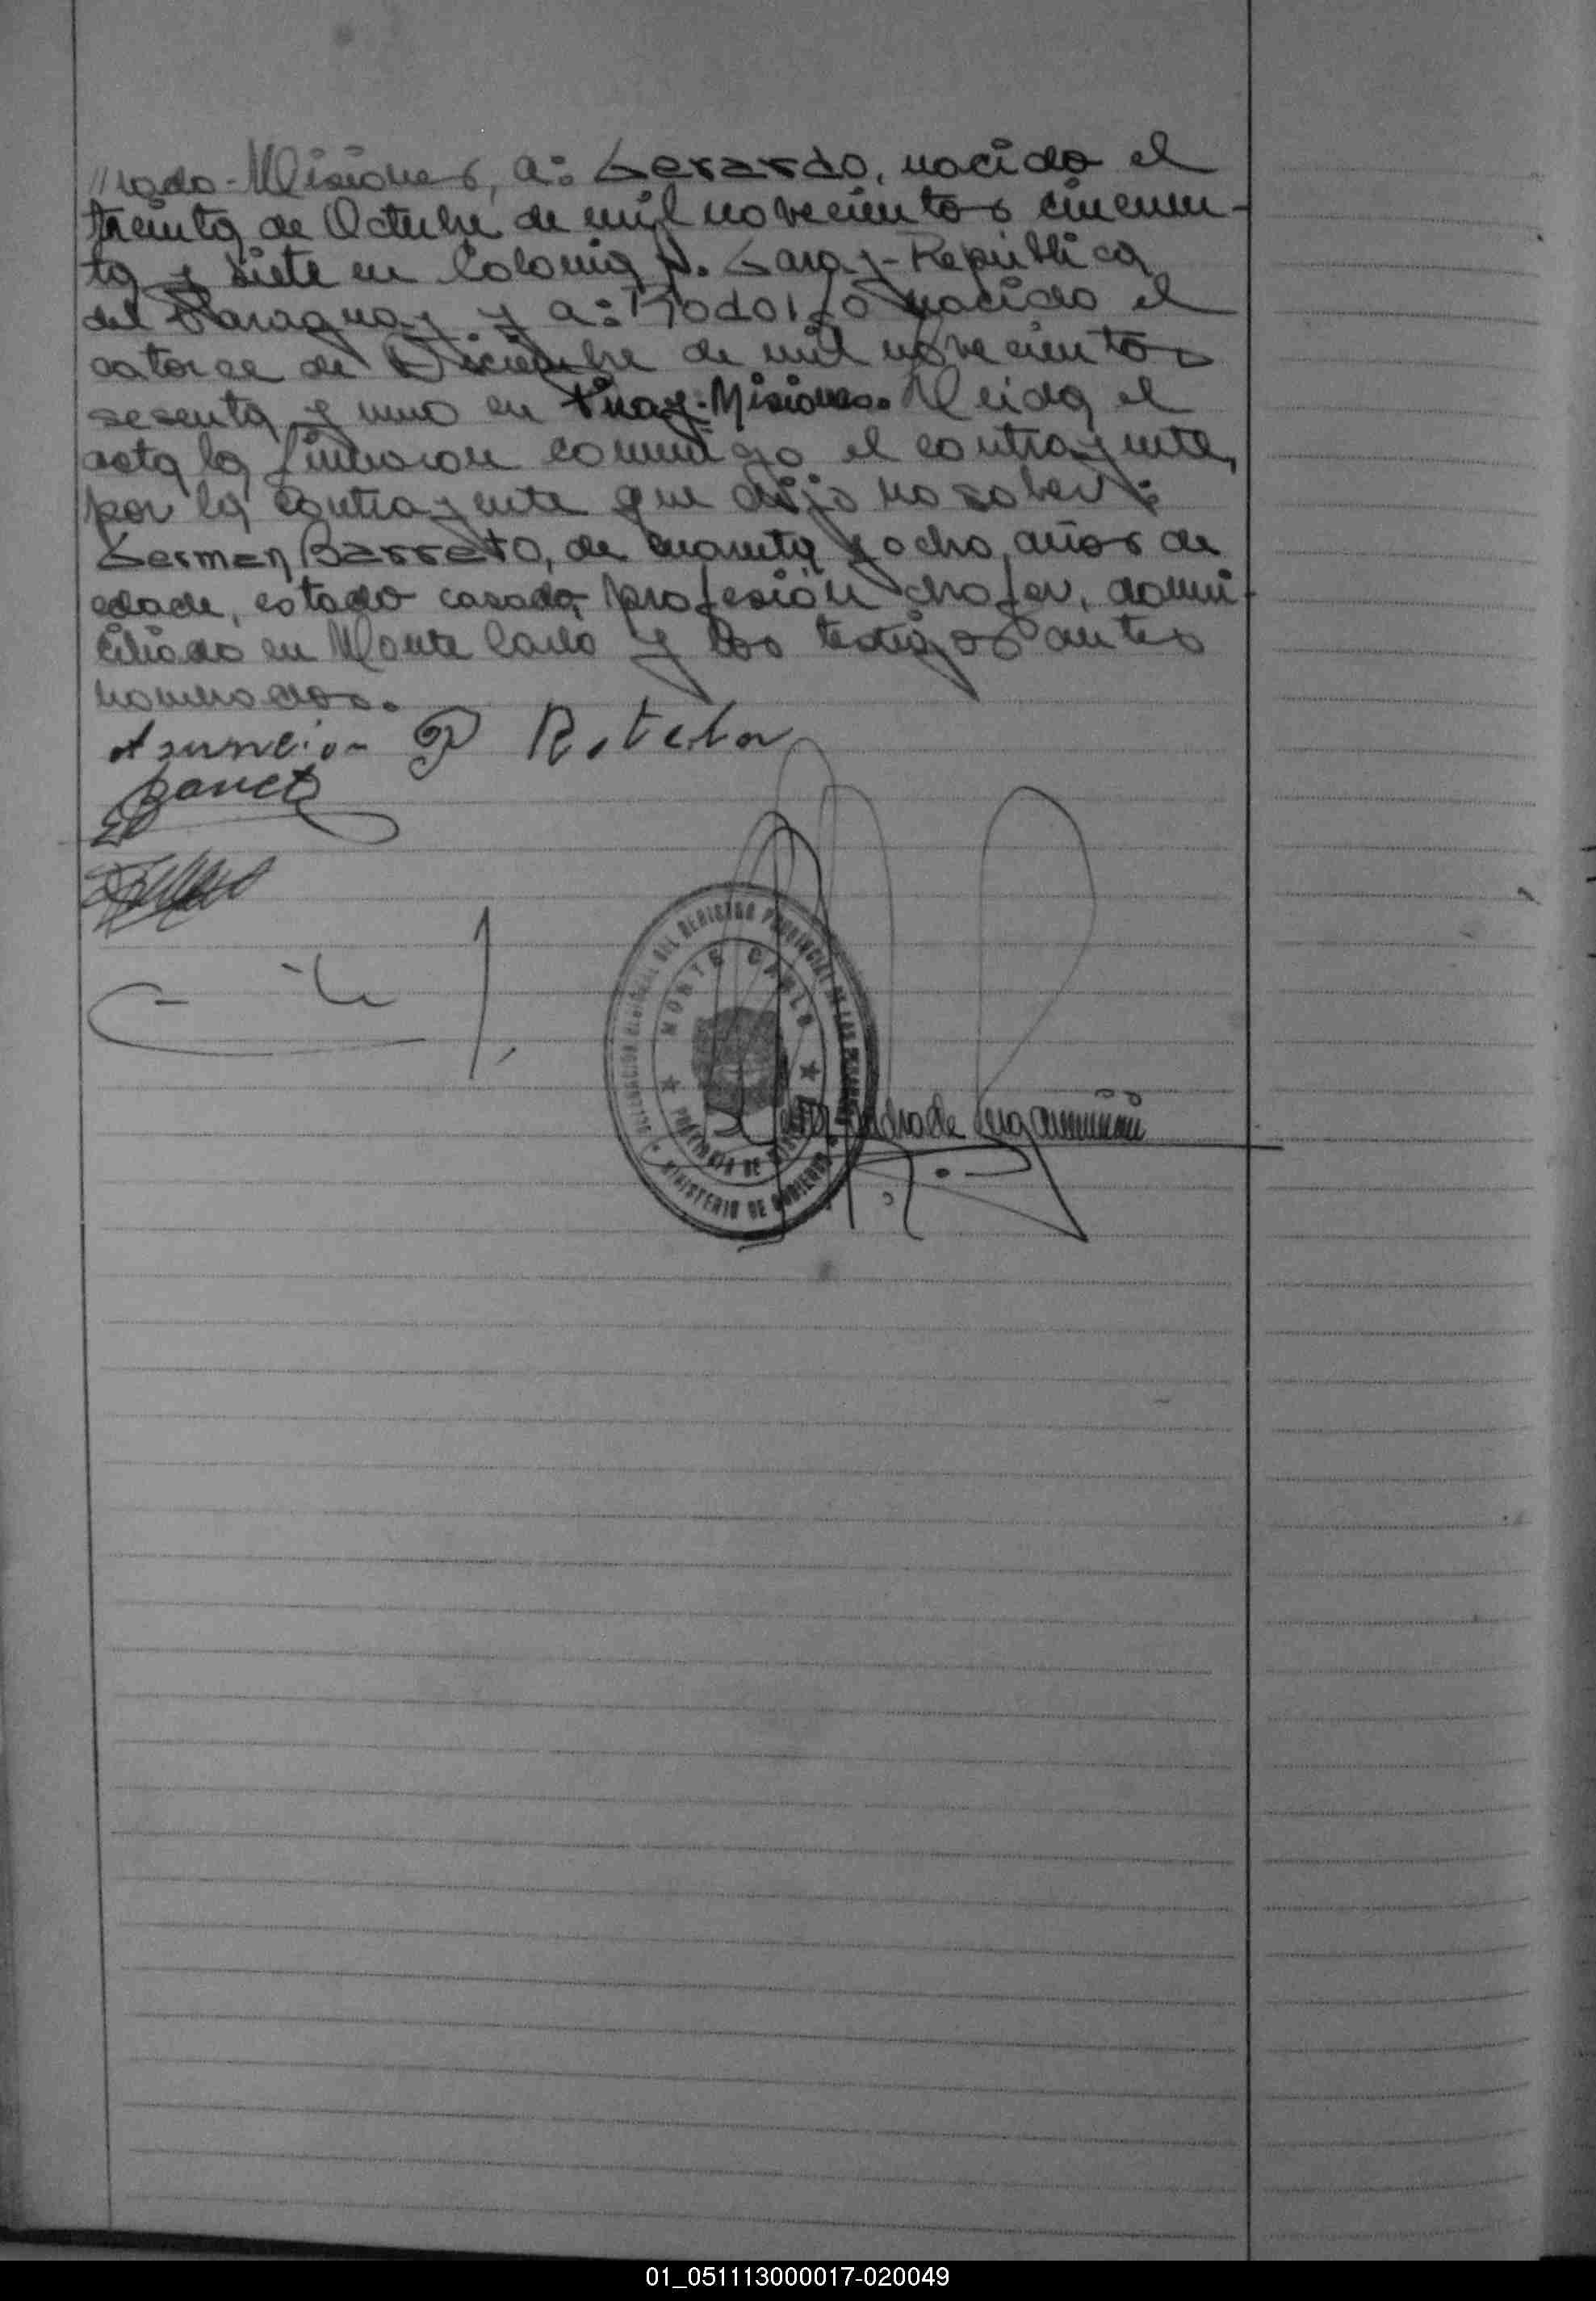 "rado-Misiones, a: Gerardo, nacido el
treinta de Octubre de mil novecientos cincuen-
ta y siete en Colonia B. Garay-República
del Paraguay y a: Rodolfo nacido el
catorce de Diciembre de mil novecientos
sesenta y uno en Piray-Misiones. Leida el
acta la firmaron conmigo el contrayente,
por la contrayente que dijo no saber:
German Barreto, de cuarenta y ocho años de
edade, estado casado, profesión chofer, domi-
ciliado en Monte Carlo y los testigos antes
nombrados.
Asuncion P Rotela
Barreto
DELEGACION SECCIONAL DEL REGISTRO PROVINCIAL DE LAS PERSONAS
MONTE CARLO
PROVINCIA DE MISIONES
MINISTERIO DE GOBIERNO
Andrade
01_051113000017-020049